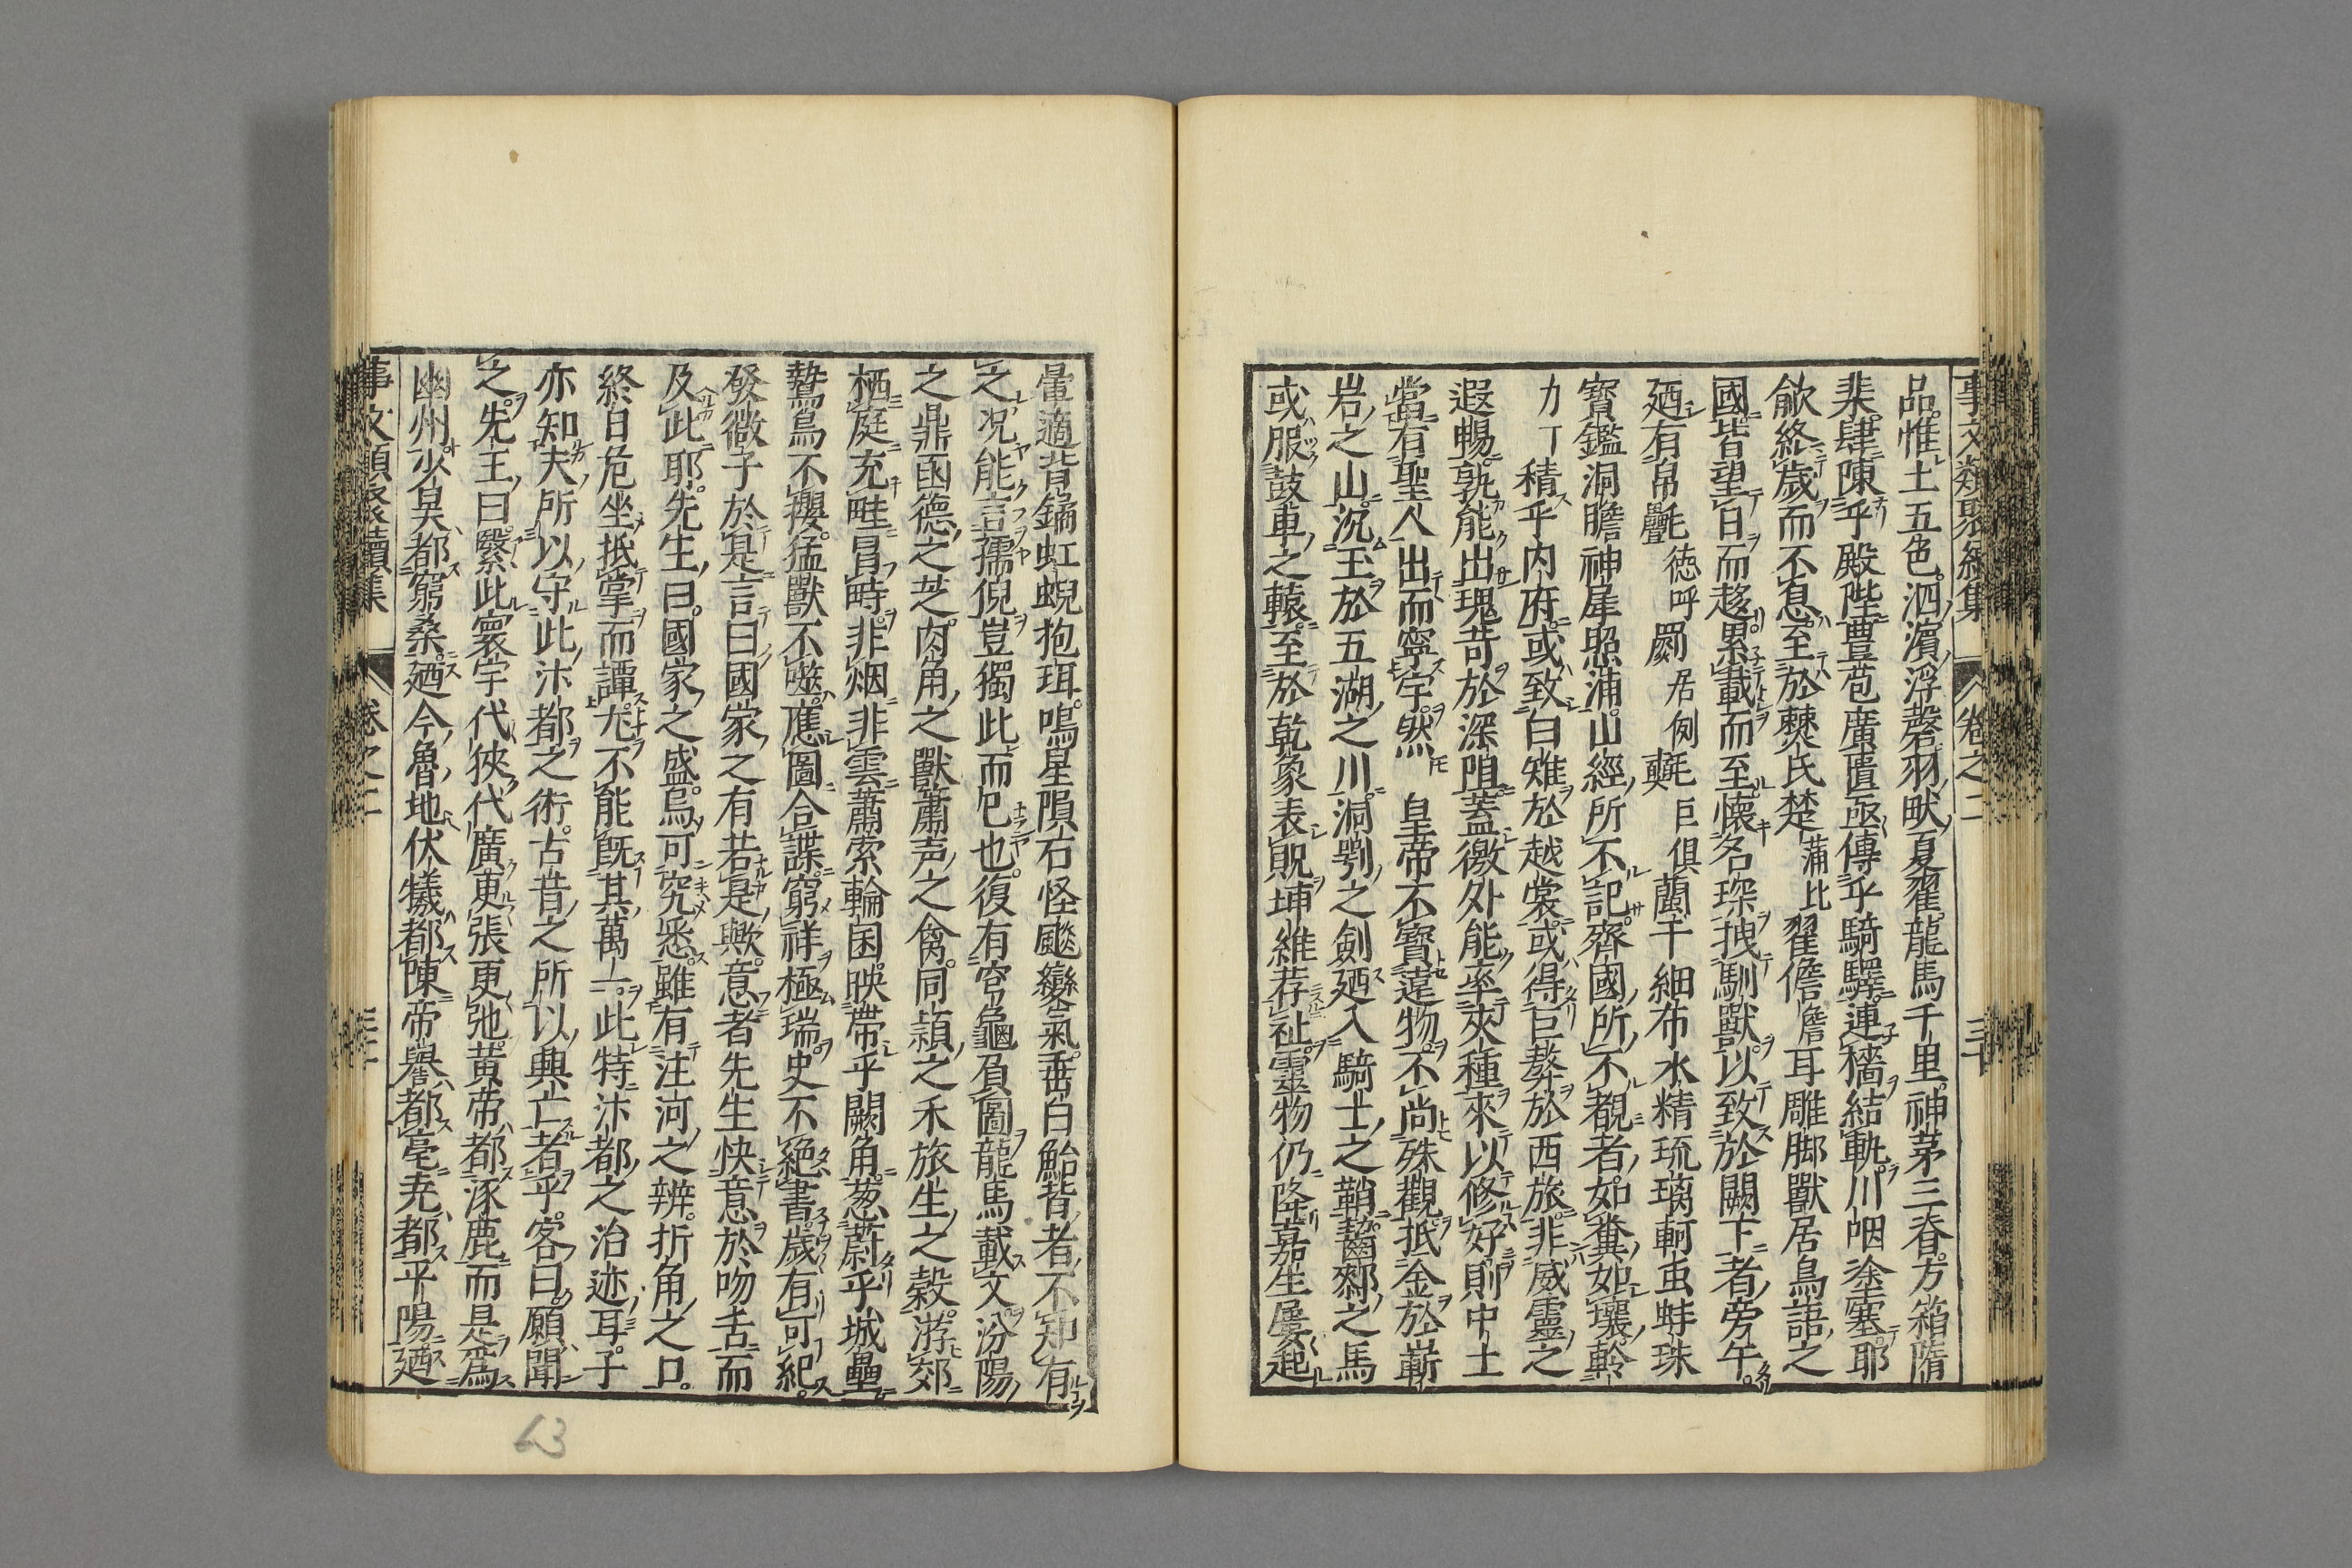 事文類聚續集 卷之二 三十
品惟土五色泗濱浮磬羽畎夏翟龍馬千里神茅三脊方箱隋
棐肆陳乎殿陛豊苞廣匱亟傳乎騎驛連檣結軌川咽塗塞耶
歈終歲而不息至於㷼氏楚蒲比翟儋詹耳雕脚獸居鳥語之
國皆望日而趍累載而至懷名琛拽馴獸以致於闕下者旁午
廼有帛氎德呼罽居例㲲巨俱蘭干細布水精琉璃軻虫蚌珠
寳鑑洞膽神犀照浦山經所不記齊國所不覩者如糞如壤軨
力丁積乎内府或致白雉於越裳或得巨獒於西旅非威靈之
遐暢孰能出瑰竒於深阻蓋徼外能率夾種來以修好則中土
當有聖人出而寧宇然皇帝不寳遠物不尚殊觀抵金於嶄
岩之山沉玉於五湖之川洞剟之劍廼入騎士之鞘齧鄰之馬
或服鼓車之轅至於乾象表貺坤維荐祉靈物仍降嘉生屢起
暈適背鐍虹蜺抱珥鳴星隕石怪飈變氣垂白鮐背者不知有
之况能言孺倪豈獨此而已也復有穹龜負圖龍馬載文汾陽
之鼎函德之芝肉角之獸簫声之禽同穎之禾旅生之糓游郊
栖庭充畦冒時非烟非雲蕭索輪囷映帶乎闕角葱蔚乎城壘
鷙鳥不攖猛獸不噬應圖合諜窮祥極瑞史不絕書歲有可紀
發微子於是言曰國家之有若是歟意者先生快意於吻舌而
及此耶先生曰國家之盛烏可究悉雖有注河之辨折角之口
終日危坐抵掌而譚尤不能既其萬一此特汴都之治迹耳子
亦知夫所以守此汴都之術古昔之所以興亡者乎客曰願聞
之先王曰繄此寰宇代狹代廣更張更弛黄帝都涿鹿而是爲
幽州少昊都窮桑廼今魯地伏犧都陳帝嚳都亳尭都平陽廼
事文類聚續集 卷之二 三十一
63